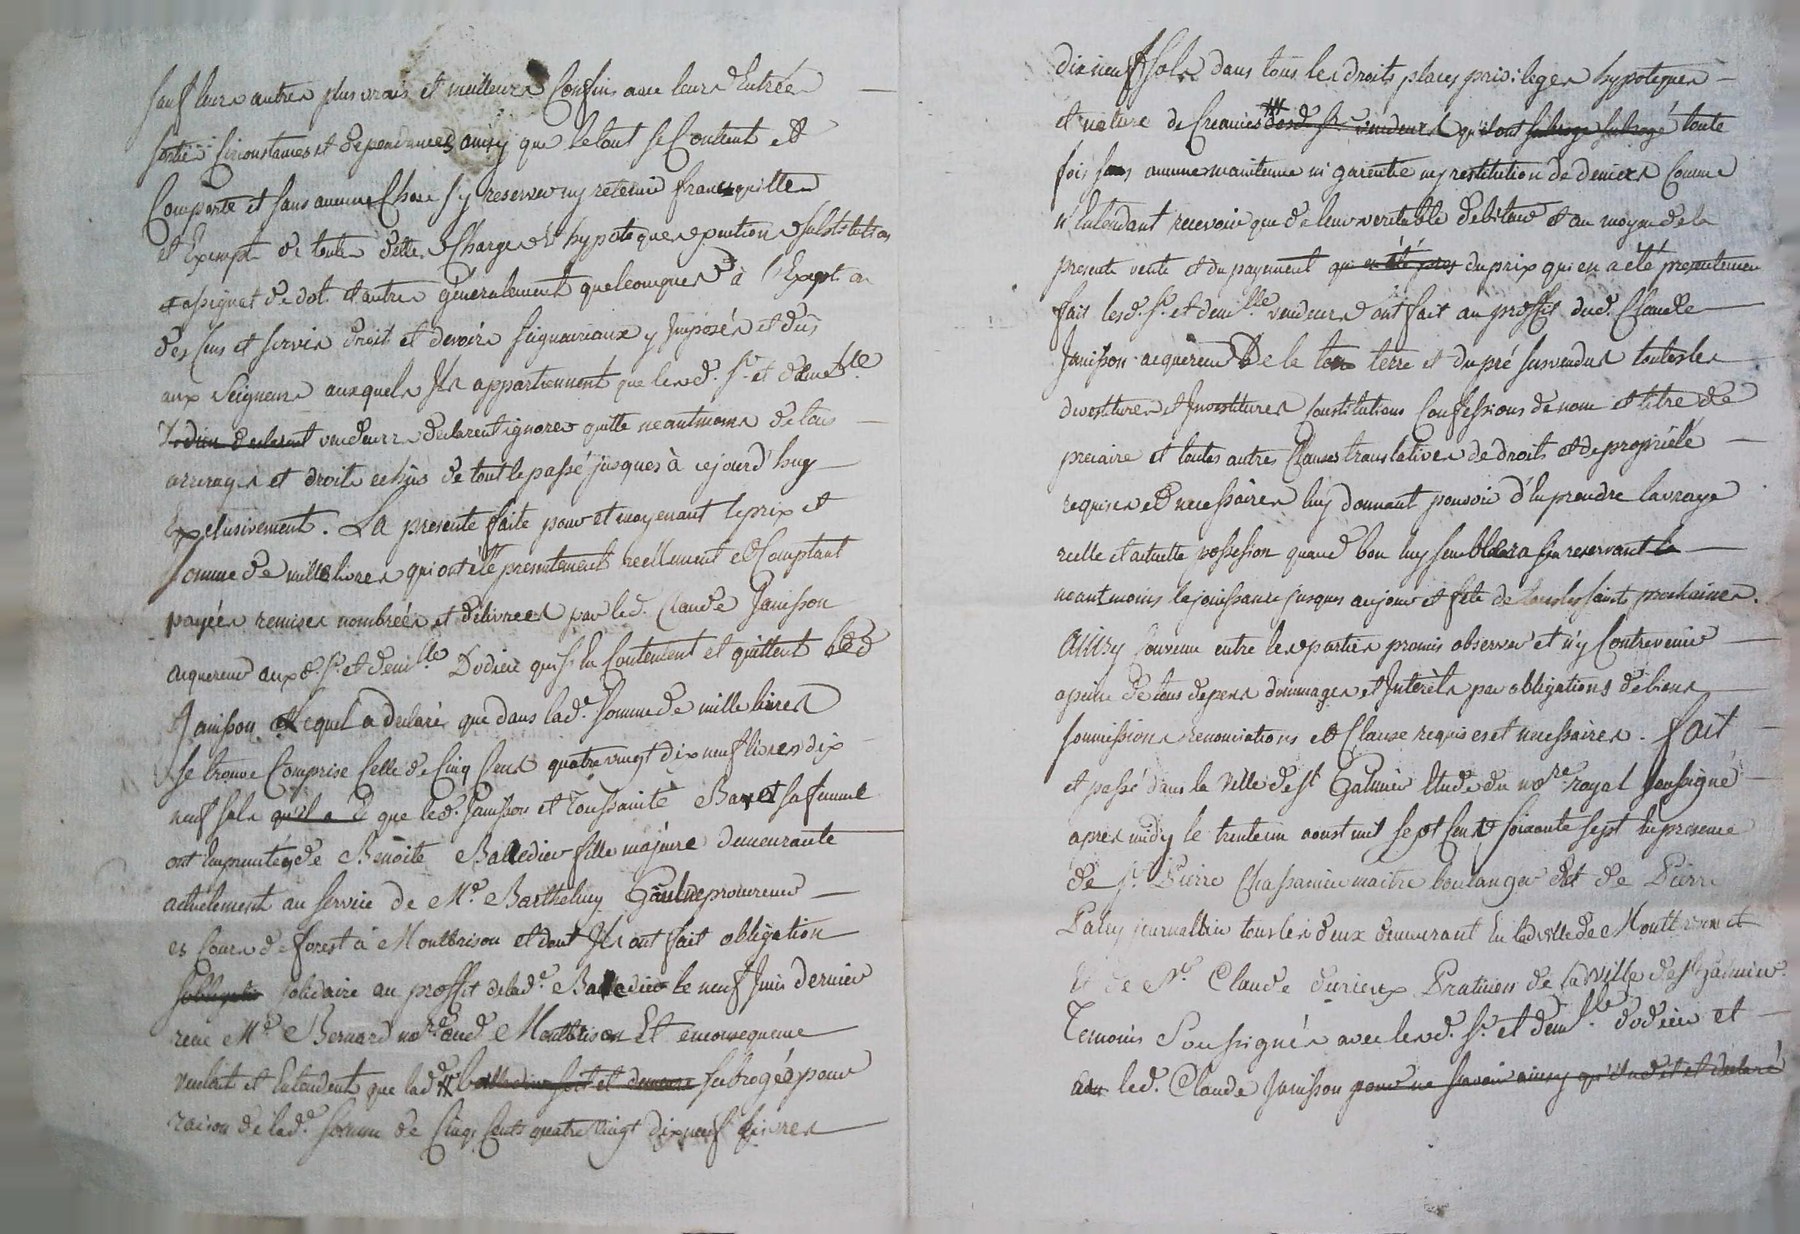 sauf leurs autres plus vrais et meilleurs Confins avec leurs Entrées
sorties Circonstances et dependances, ainsy que le tout se Contient et
Comporte et sans aucune Chose s'y reserver ny retenir franc quitte
et Exempt de toutes dettes Charges et hypoteques pention substitution
assignat de dot et autres généralement quelconques à l'Exception
des Cens et servis droits et devoirs seigneuriaux y Imposés et dûs
aux Seigneurs auxquels Ils appartiennent que lesd. Sr. et demelle
Dodieu declarent vendeurs declarent ignorer quitte neantmoins de tous
arrerages et droits echus de tout le passé jusques à cejourd'huy
Exclusivement. La presente faite pour et moyenant le prix et
somme de mille livres qui ont été presentement reellement et Comptant
payées remises nombrées et délivrées par led. Claude Janisson
acquereur auxd. Sr. et demlle. Dodieu qui s'en Contentent et quittent led
Janisson. Lequel a declaré que dans lade. somme de mille livres
se trouve Comprise Celle de Cinq Cens quatre vingt dix neuf livres dix
neuf sols qu'il a que led. Janisson et Toussainte Baret sa femme
ont Empruntés de Benoite Balledier fille majeure demeurante
actuelement au service de Me. Barthelmy procureur
es Cours de forest à Montbrison et dont Ils ont fait obligation
solidaire au proffit de lade. Balledier le neuf Juin dernier
reçue Me. Bernard nore. aud. Montbrison Et en consequence
veulent et Entendent que lade. balledier soit et demeure subrogée pour
raison de lade. somme de Cinq Cents quatre vingt dix neuf livres
dix neuf sols dans tous les droits places privileges hypoteques
et nature de Creances desd. Sr. vendeurs qu'ils ont subrogé subrogé toute
fois sans aucune maintenue ni garentie ny restitution de deniers Comme
n'Entendant recevoir que de leur veritable debiteur et au moyen de la
presente vente et du payement qui en été pres du prix qui en a été presentement
fait lesd. Sr. et demlle. vendeurs ont fait au proffit dud. Claude
Janisson acquereur De la terre et du pré susvendus toutes les
devestitures et Investitures Constitutions Confessions de nom et titre de
precaire et toutes autres Clauses translatives de droits et de propriété
requises et necessaires luy donnant pouvoir d'en prendre la vraye
réelle et actuelle possession quand bon luy semblera s'en reservant la
neantmoins la jouissance jusques au jour et fête de tous les saints prochaines.
Ainsy Convenu entre les parties promis observer et n'y Contrevenir
a peine de tous depens dommages et Intérêts par obligations de biens
soumissions renonciations et Clauses requises et necessaires. fait
et passé dans la ville de St Galmier Etude du nore. royal soussigné
apres midy le trente un aoust mil sept Cens soixante sept En presence
de Sr. Pierre Chassanieu maitre boulanger Et de Pierre
journallier tous les deux demeurant En lad ville de Montbrison et
Et de Sr. Claude Durieux Praticien de la ville de St Galmier
Temoins Soussignés avec lesd. Sr. et demlle. dodieu et
led. Claude Janisson pour ne sçavoir ainsy qu'il a dit et declaré